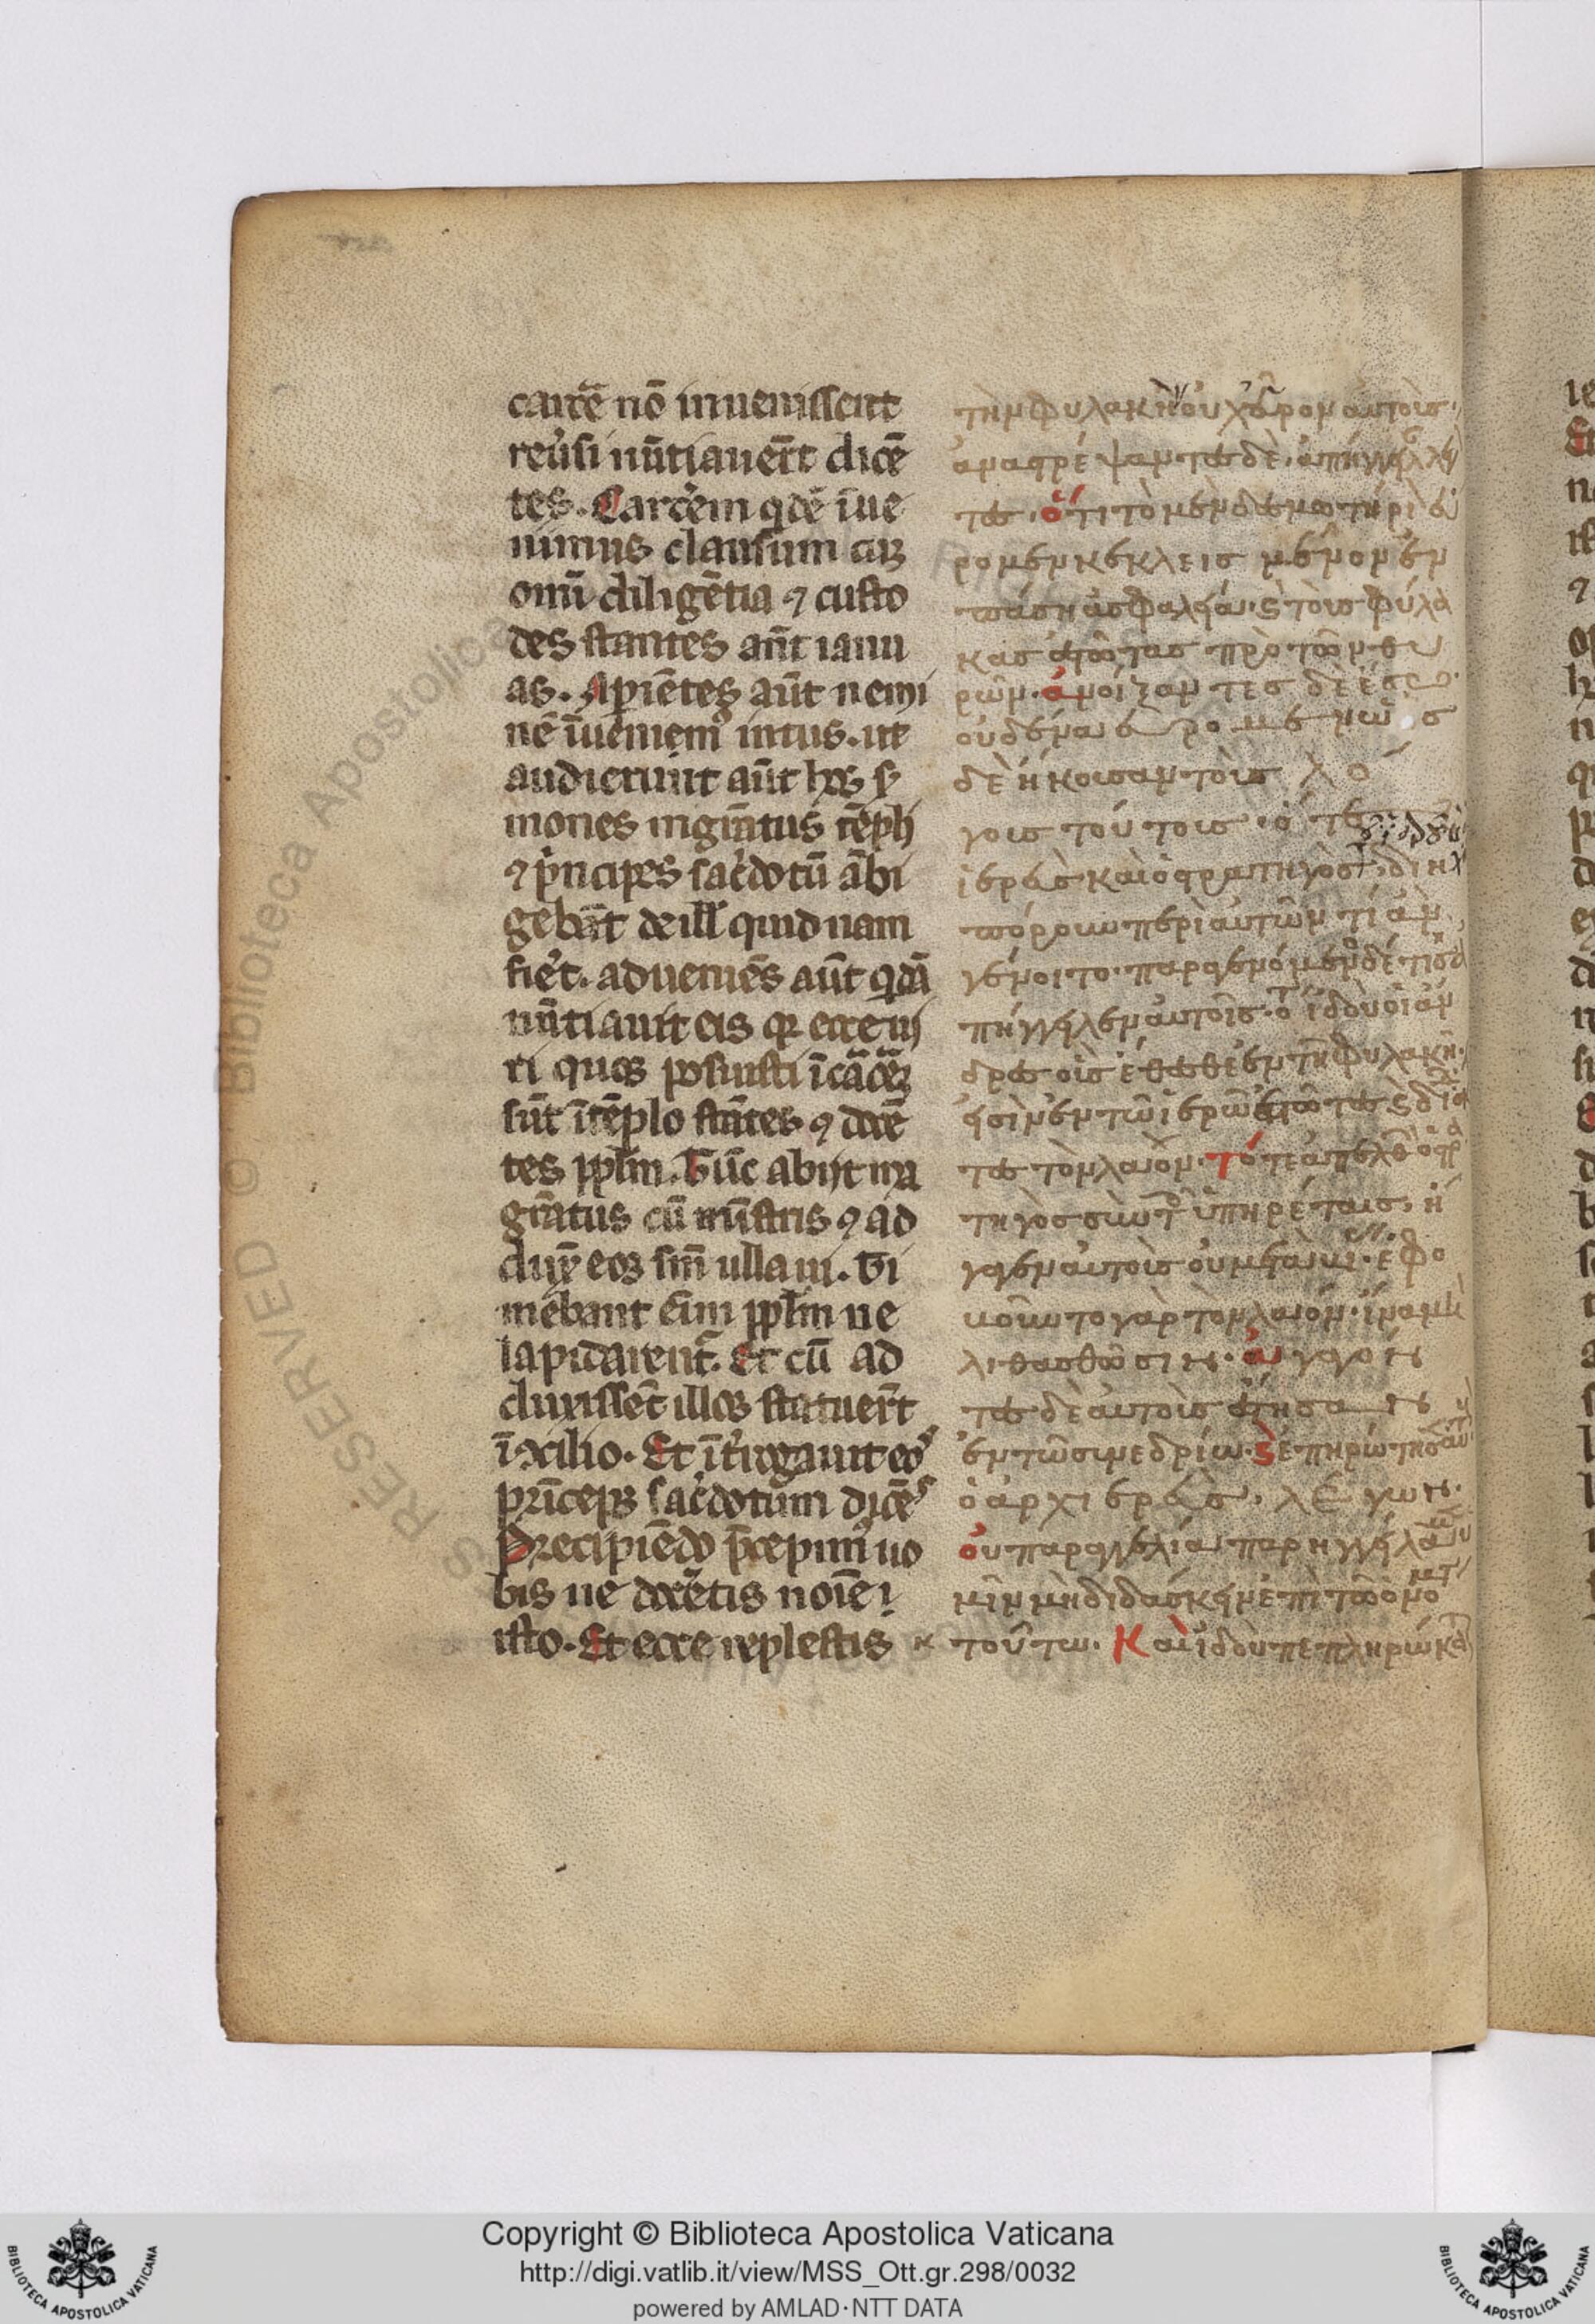 carcē nō inuenissent
reũsi nūtiauer̄t dicē
tes. Carcerem qdē īue
nimus clausum cū
omī diligētia ⁊ custo
des stantes añt ianu
as. Apiētes aūt nemi
nē īuenimꝰ intus. ut
audierunt aūt hos ser
mones magr̄atus tēpli
⁊ prīncipes sac̓dotū ābi
gebāt de illꝭ quid nam
fiet̓. adueniēs aūt qdā
nūtiauit eis qꝛ ecce ui
ri quos posuisti ī carcere
sūt ī tēplo stātes ⁊ docē
tes pplm̄. Tūc abijt ma
gr̄atus cū mīstris ⁊ ad
duxͭ eos sin̄ ulla ui. Ti
mebant eīm pplm̄ ne
lapidarent᷑. Et cū ad
duxissēt illos statuer̄t
ī ꝯcilio. Et īt̓rogauit eoˢ
prīceps sac̓dotum dicēˢ
Precipiēdo p̄cepimꝰ uo
bis ne docēretis noīe ī
isto. Et ecce replestis
τὴν φυλακὴν οὐχ εὗρον αὐτοὺς·
ἀναστρέψαντες δὲ ἀπήγγειλαν λέγον
τες· ὅτι τὸ μὲν δεσμωτήριον εὕ
ρομεν κεκλεισμένον ἐν
πάσῃ ἀσφαλείᾳ· ϗ τοὺς φύλα
κας ἑστῶτας πρὸ τῶν θυ
ρῶν· ἀνοίξαντες δὲ ἔσω
οὐδένα εὕρομεν ὡς
δὲ ἤκουσαν τοὺς λό
γους τούτους· ὅ τε
ἱερεὺς καὶ ὁ στρατηγὸς διη
πόρουν περὶ αὐτῶν τί ἂν
γένοιτο· παραγενόμενος δέ τις ἀ
πήγγειλεν αὐτοῖς· ὅτι ἰδοὺ οἱ ἄν
δρες οὓς ἔθεσθε ἐν τῇ φυλακῇ·
εἰσὶν ἐν τῷ ἱερῷ ἑστῶτες ϗ διδάσκον
τες τὸν λαόν· τότε ἀπελθὼν ὁ στρα
τηγὸς σὺν τοῖς ὑπηρέταις· ἤ
γαγεν αὐτοὺς οὐ μετὰ βίας· ἐφο
βοῦντο γὰρ τὸν λαόν· ἵνα μὴ
λιθασθῶσιν· ἀγαγόν
τες δὲ αὐτοὺς ἔστησαν
ἐν τῷ συνεδρίῳ· ϗ ἐπηρώτησεν αὐτοὺς
ὁ ἀρχιερεὺς· λέγων·
οὐ παραγγελίᾳ παρηγγείλαμεν ὑ
μῖν μὴ διδάσκειν ἐπὶ τῷ ὀνόματι
τούτῳ· Καὶ ἰδοὺ πεπληρώκατε
Copyright © Biblioteca Apostolica Vaticana
http://digi.vatlib.it/view/MSS_Ott.gr.298/0032
powered by AMLAD·NTT DATA